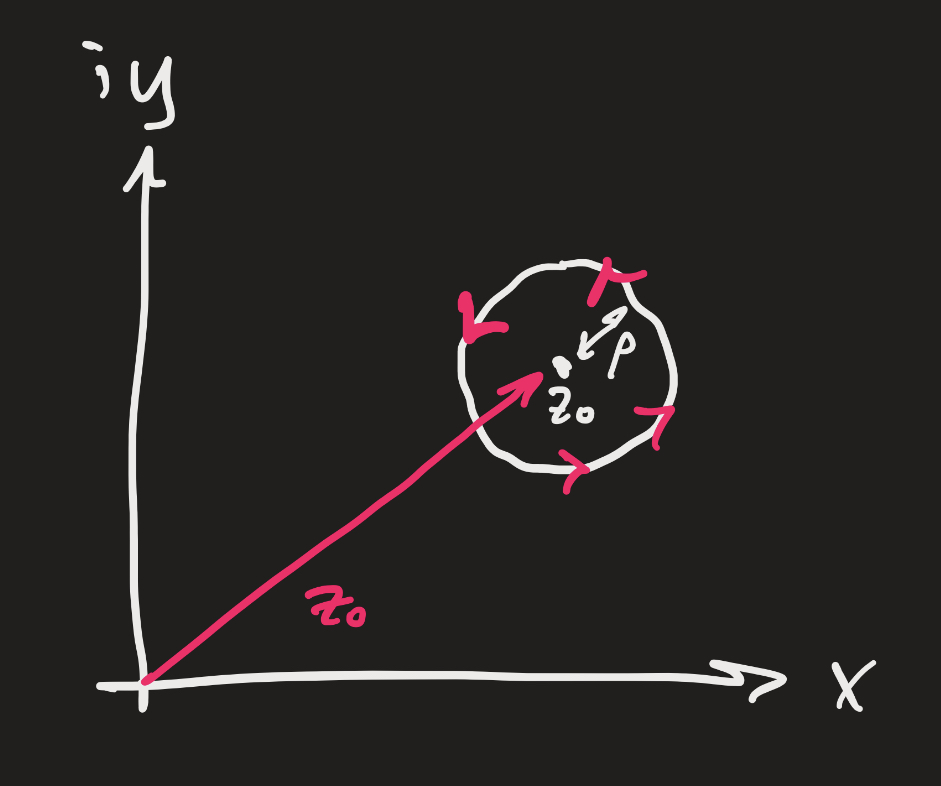 iy
ρ
z₀
z₀
x